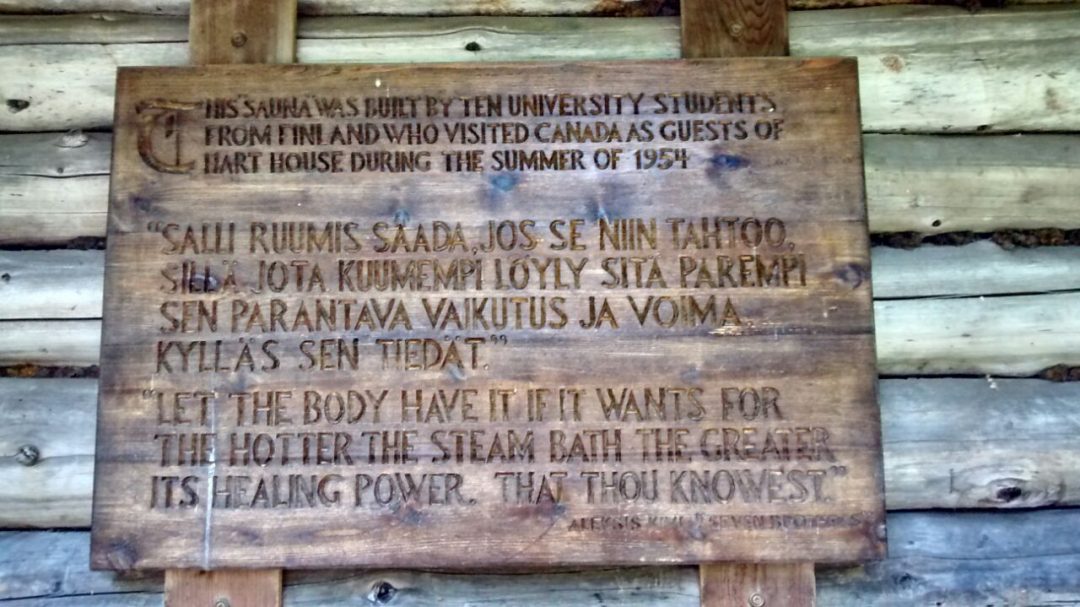 THIS "SAUNA" WAS BUILT BY TEN UNIVERSITY STUDENTS
FROM FINLAND WHO VISITED CANADA AS GUESTS OF
HART HOUSE DURING THE SUMMER OF 1954
"SALLI RUUMIS SAADA, JOS SE NIIN TAHTOO,
SILLÄ JOTA KUUMEMPI LÖYLY SITÄ PAREMPI
SEN PARANTAVA VAIKUTUS JA VOIMA,
KYLLÄS SEN TIEDÄT."
"LET THE BODY HAVE IT IF IT WANTS FOR
THE HOTTER THE STEAM BATH THE GREATER
ITS HEALING POWER. THAT THOU KNOWEST."
ALEKSIS KIVI "SEVEN BROTHERS